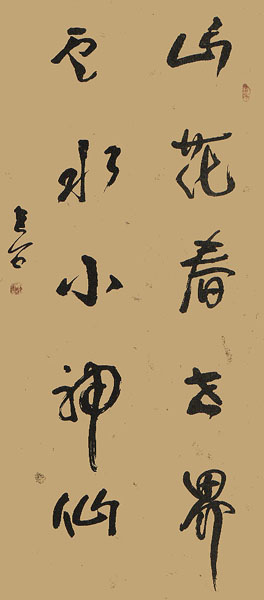 山花春世界
云水小神仙